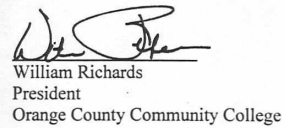 William Richards
President
Orange County Community College